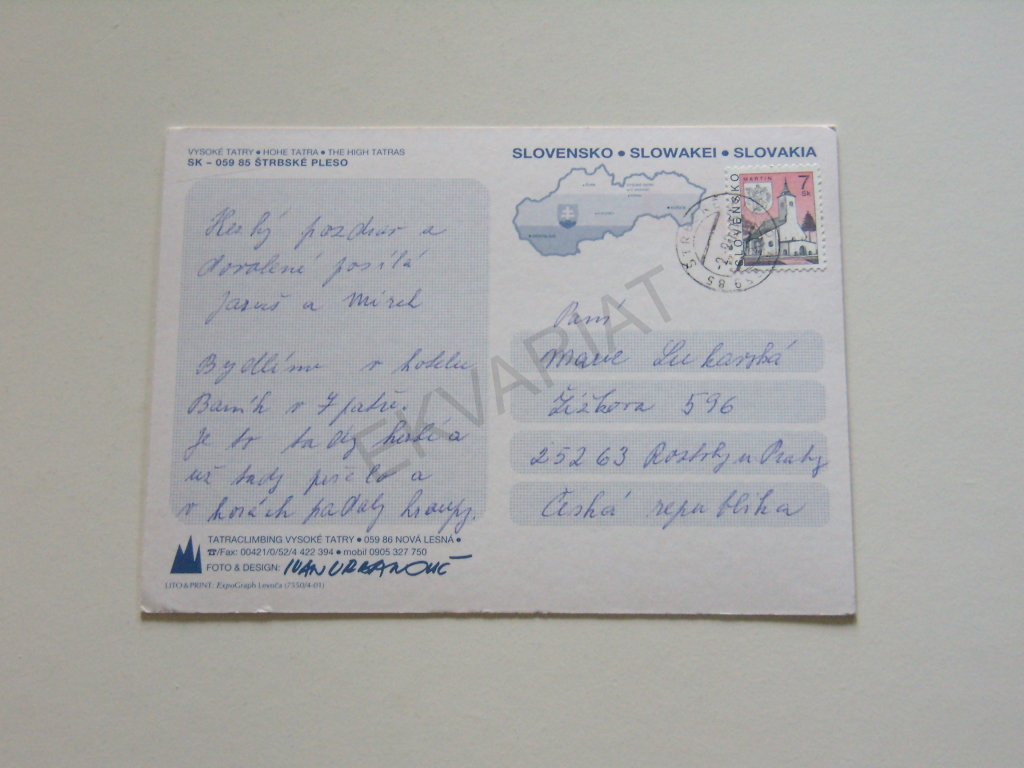 VYSOKÉ TATRY ● HOHE TATRA ● THE HIGH TATRAS
SK – 059 85 ŠTRBSKÉ PLESO
Hezký pozdrav a
dovolené posílá
a Mirek
Bydlíme v hotelu
Baník v 7 patře.
Je to tady hezké a
už tady pršelo a
v horách padaly kroupy.
TATRACLIMBING VYSOKÉ TATRY ● 059 86 NOVÁ LESNÁ ●
☎/Fax: 00421/0/52/4 422 394 ● mobil 0905 327 750
FOTO & DESIGN: IVAN URBANOVIČ
LITO & PRINT: ExpoGraph Levoča (7350/4-01)
SLOVENSKO ● SLOWAKEI ● SLOVAKIA
MARTIN
7
Sk
SLOVENSKO
059 85
Paní
Marie Lukavská
Žižkova 596
252 63 Roztoky u Prahy
Česká republika
EKVARIAT